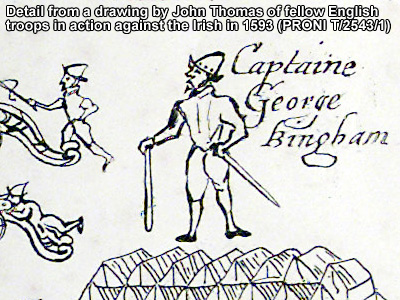 Detail from a drawing by John Thomas of fellow English
troops in action against the Irish in 1593 (PRONI T/2543/1)
Captaine
George
Bingham